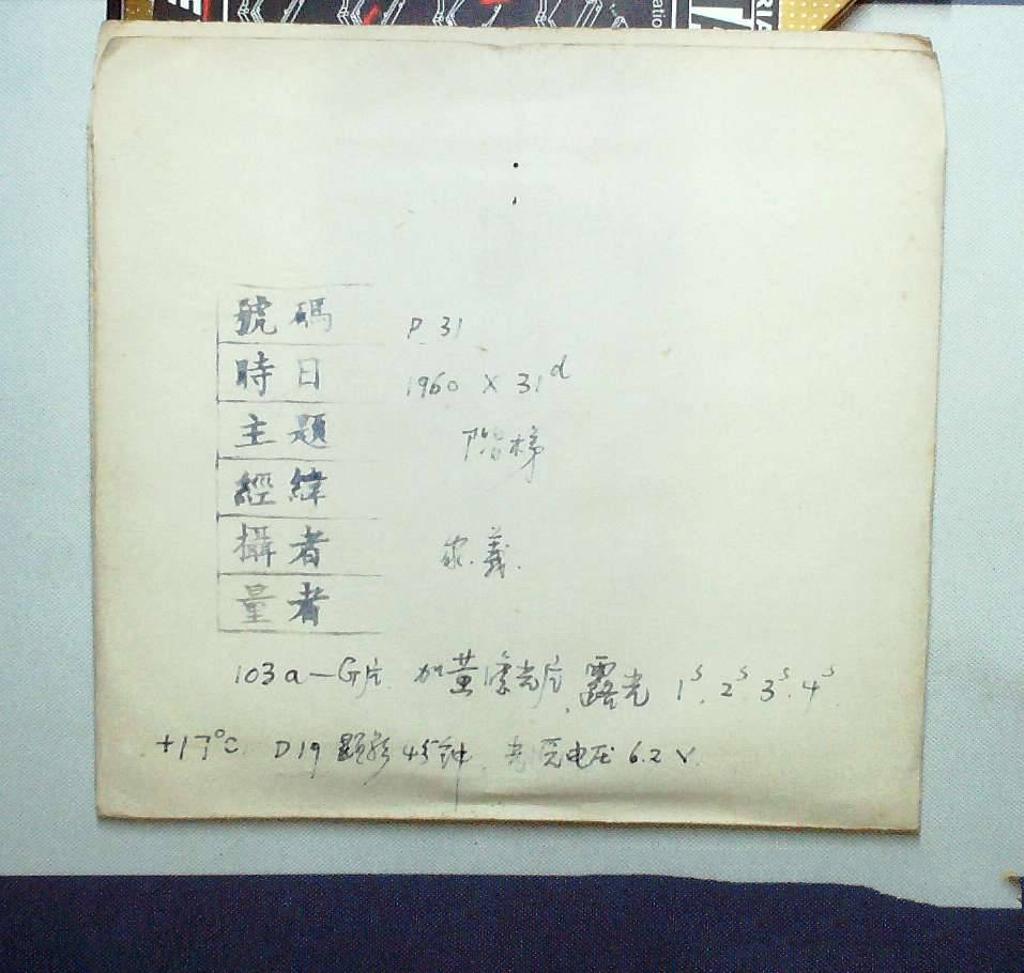 RIA
號碼 P 31
時日 1960 X 31d
主題 階梯
經緯
攝者 家義.
量者
103a—G片 加黄濾光片, 露光 1s. 2s 3s. 4s
+17°C D19 顯影 4分钟. 光源电压 6.2 V.